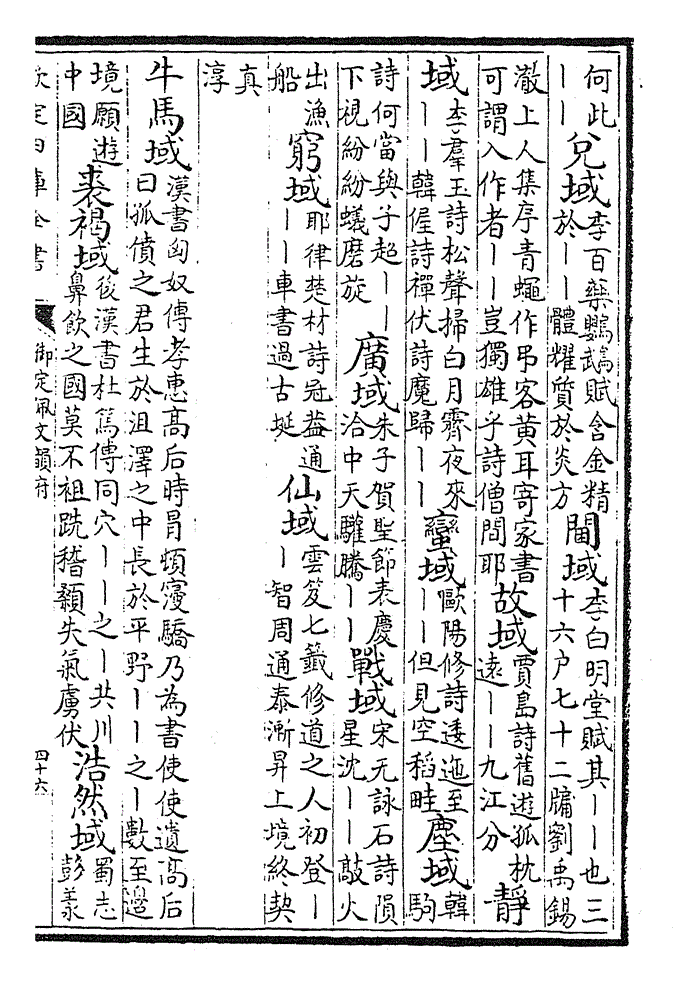 何此——兌域李百藥鸚鵡賦含金精於——體耀質於炎方閫域李白明堂賦其——也三十六户七十二牖劉禹錫
澈上人集序青蠅作弔客黄耳寄家書可謂入作者——豈獨雄乎詩僧間耶故域賈島詩舊遊孤枕遠——九江分靜
域李羣玉詩松聲掃白月霽夜來——韓偓詩禪伏詩魔歸——蠻域歐陽修詩逶迤至——但見空稻畦塵域韓駒
詩何當與子超——下視紛紛蟻磨旋廣域朱子賀聖節表慶洽中天驩騰——戰域宋无詠石詩隕星沈——敲火
出漁船窮域耶律楚材詩冠葢通——車書過古埏仙域雲笈七籤修道之人初登——智周通泰漸昇上境終契
真淳
牛馬域漢書匈奴傳孝惠高后時冒頓寖驕乃為書使使遺高后曰孤僨之君生於沮澤之中長於平野——之—數至邊
境願遊中國裘褐域後漢書杜篤傳同穴——之—共川鼻飲之國莫不祖跣稽顙失氣虜伏浩然域蜀志彭羕
欽定四庫全書 御定佩文韻府 四十六